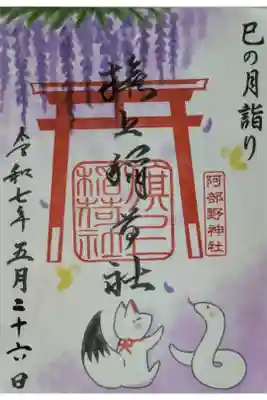 巳の月詣り
旗上稲荷社
旗上
稲荷社
阿部野神社
令和七年五月二十六日